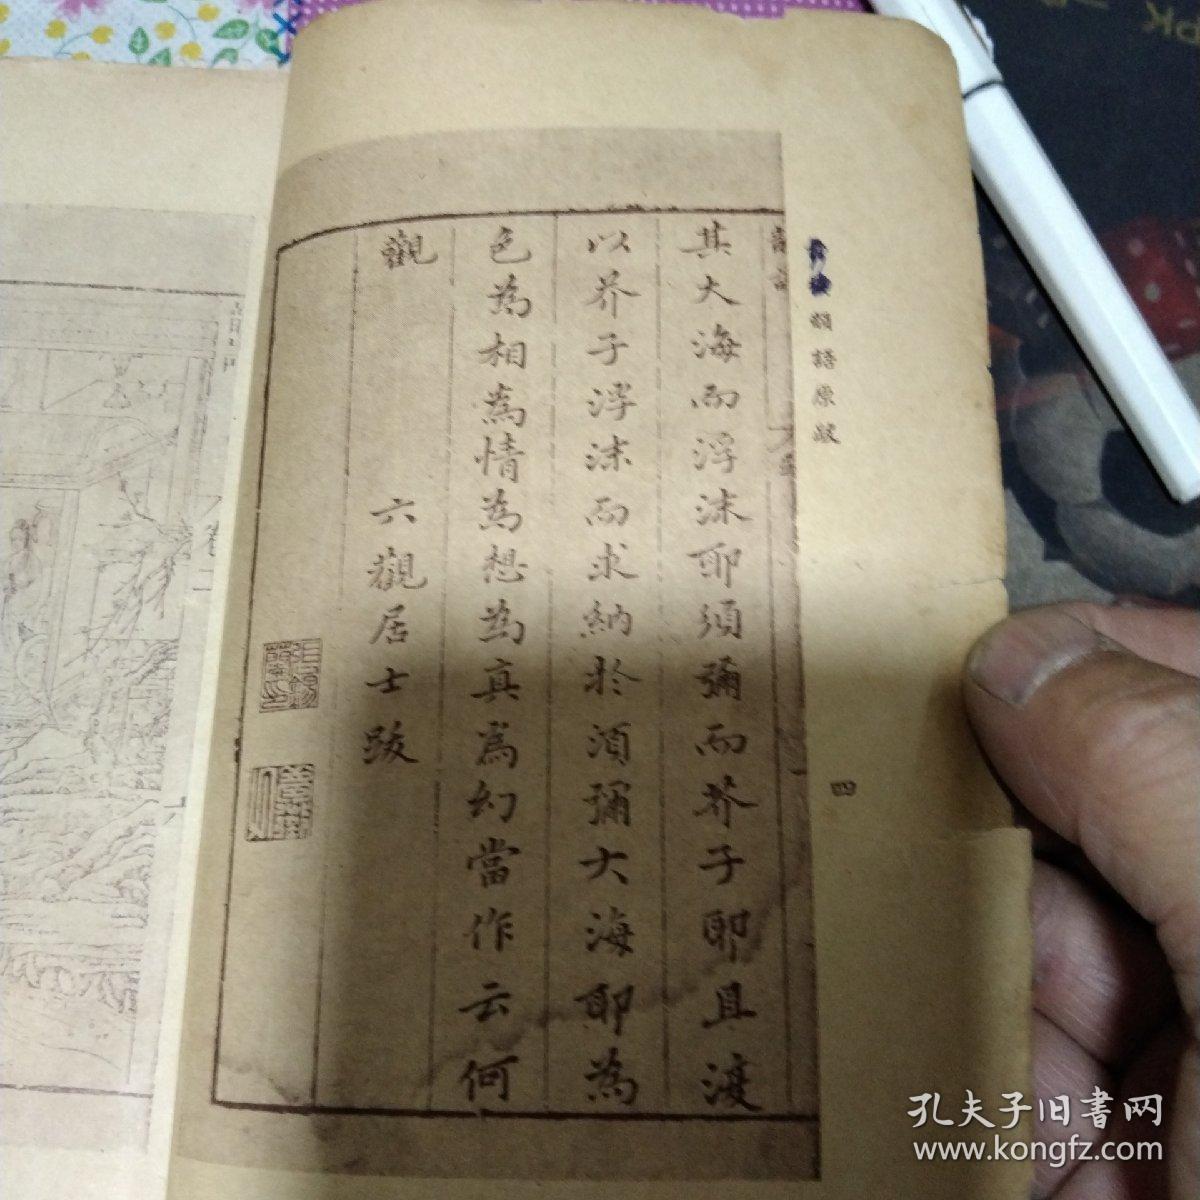 韻語原跋
四
其大海而浮沫耶須彌而芥子耶且漫
以芥子浮沫而求納於須彌大海耶為
色為相為情為想為真為幻當作云何
觀
六觀居士跋
孔夫子旧書网
www.kongfz.com